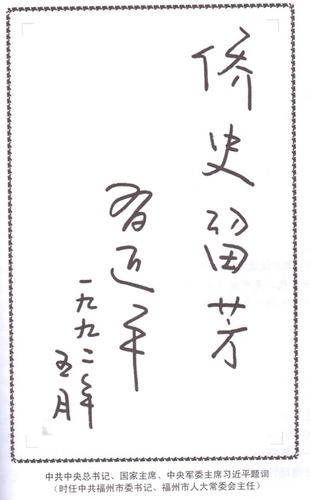 侨史留芳
习近平
一九九二年
五月
中共中央总书记、国家主席、中央军委主席习近平题词
(时任中共福州市委书记、福州市人大常委会主任)